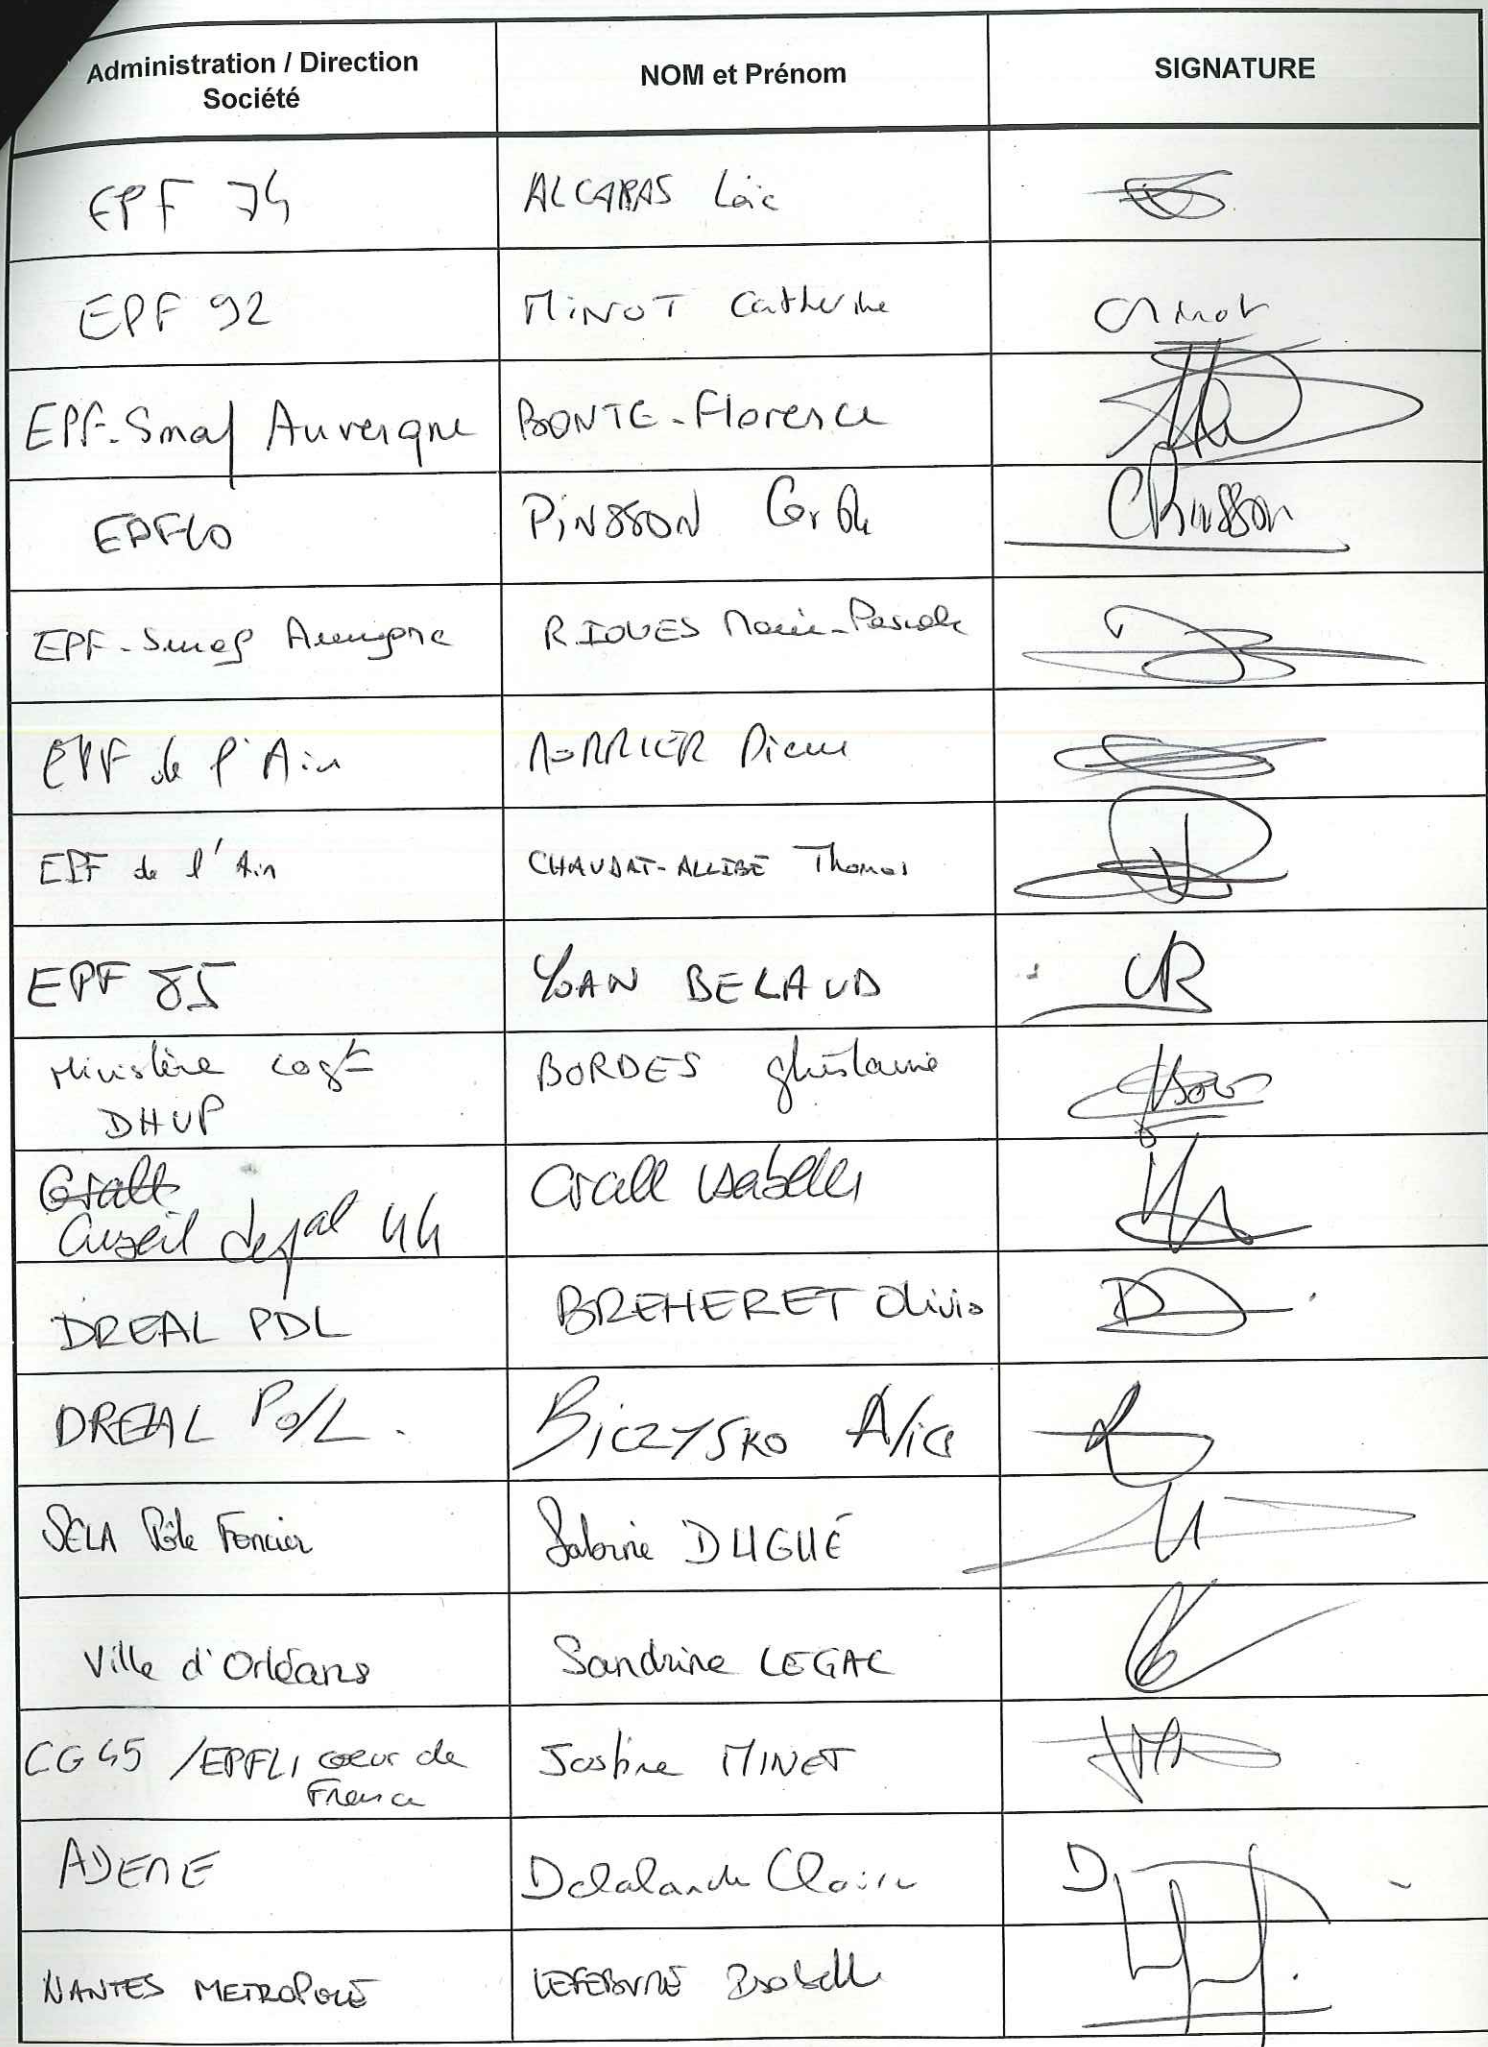 Administration / Direction
Société
NOM et Prénom
SIGNATURE
EPF 74 ALCARAS Loïc
EPF 92 MINOT Catherine
EPF-Smaf Auvergne BONTE-Florence
EPFLO PINSSON
EPF-Smaf Auvergne RIOUES Marie-Pascale
EPF de l'Ain Pierre
EPF de l'Ain CHAUDAT-ALLIBE Thomas
EPF 85 YOAN BELAUD
Ministère Logt BORDES Ghislaine
DHUP
Grall Grall Isabelle
Conseil depal 44
DREAL PDL BREHERET Olivia
DREAL Pd/L. BICZYSKO Alice
SELA Pôle Foncier Sabrine DUGUÉ
Ville d'Orléans Sandrine LEGAC
CG45 /EPFLI coeur de Justine MINET
France
ADEME Delalande Claire
NANTES METROPOLE LEFEBVRE Isabelle